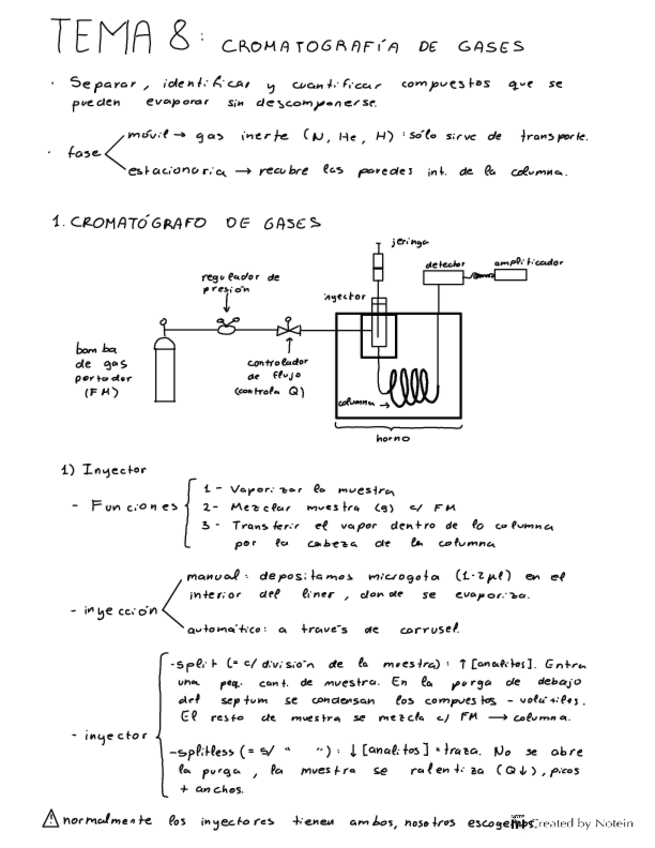 TEMA 8: CROMATOGRAFÍA DE GASES
· Separar, identificar y cuantificar compuestos que se
pueden evaporar sin descomponerse.
· fase
móvil → gas inerte (N, He, H) : sólo sirve de transporte.
estacionaria → recubre las paredes int. de la columna.
1. CROMATÓGRAFO DE GASES
jeringa
detector
amplificador
regulador de
presión
inyector
bomba
de gas
portador
(FM)
controlador
de flujo
(controla Q)
columna →
horno
1) Inyector
- Funciones
1 - Vaporizar la muestra
2- Mezclar muestra (g) c/ FM
3 - Transferir el vapor dentro de la columna
por la cabeza de la columna
- inyección
manual: depositamos microgota (1-2 μl) en el
interior del liner, donde se evapora.
automático: a través de carrusel.
- inyector
-split (= c/ división de la muestra) : ↑ [analitos]. Entra
una peq. cant. de muestra. En la purga de debajo
del septum se condensan los compuestos - volátiles.
El resto de muestra se mezcla c/ FM → columna.
-splitless (= s/ " ") : ↓ [analitos] = traza. No se abre
la purga, la muestra se ralentiza (Q↓), picos
+ anchos.
⚠ normalmente los inyectores tienen ambos, nosotros escogemos.
Created by Notein